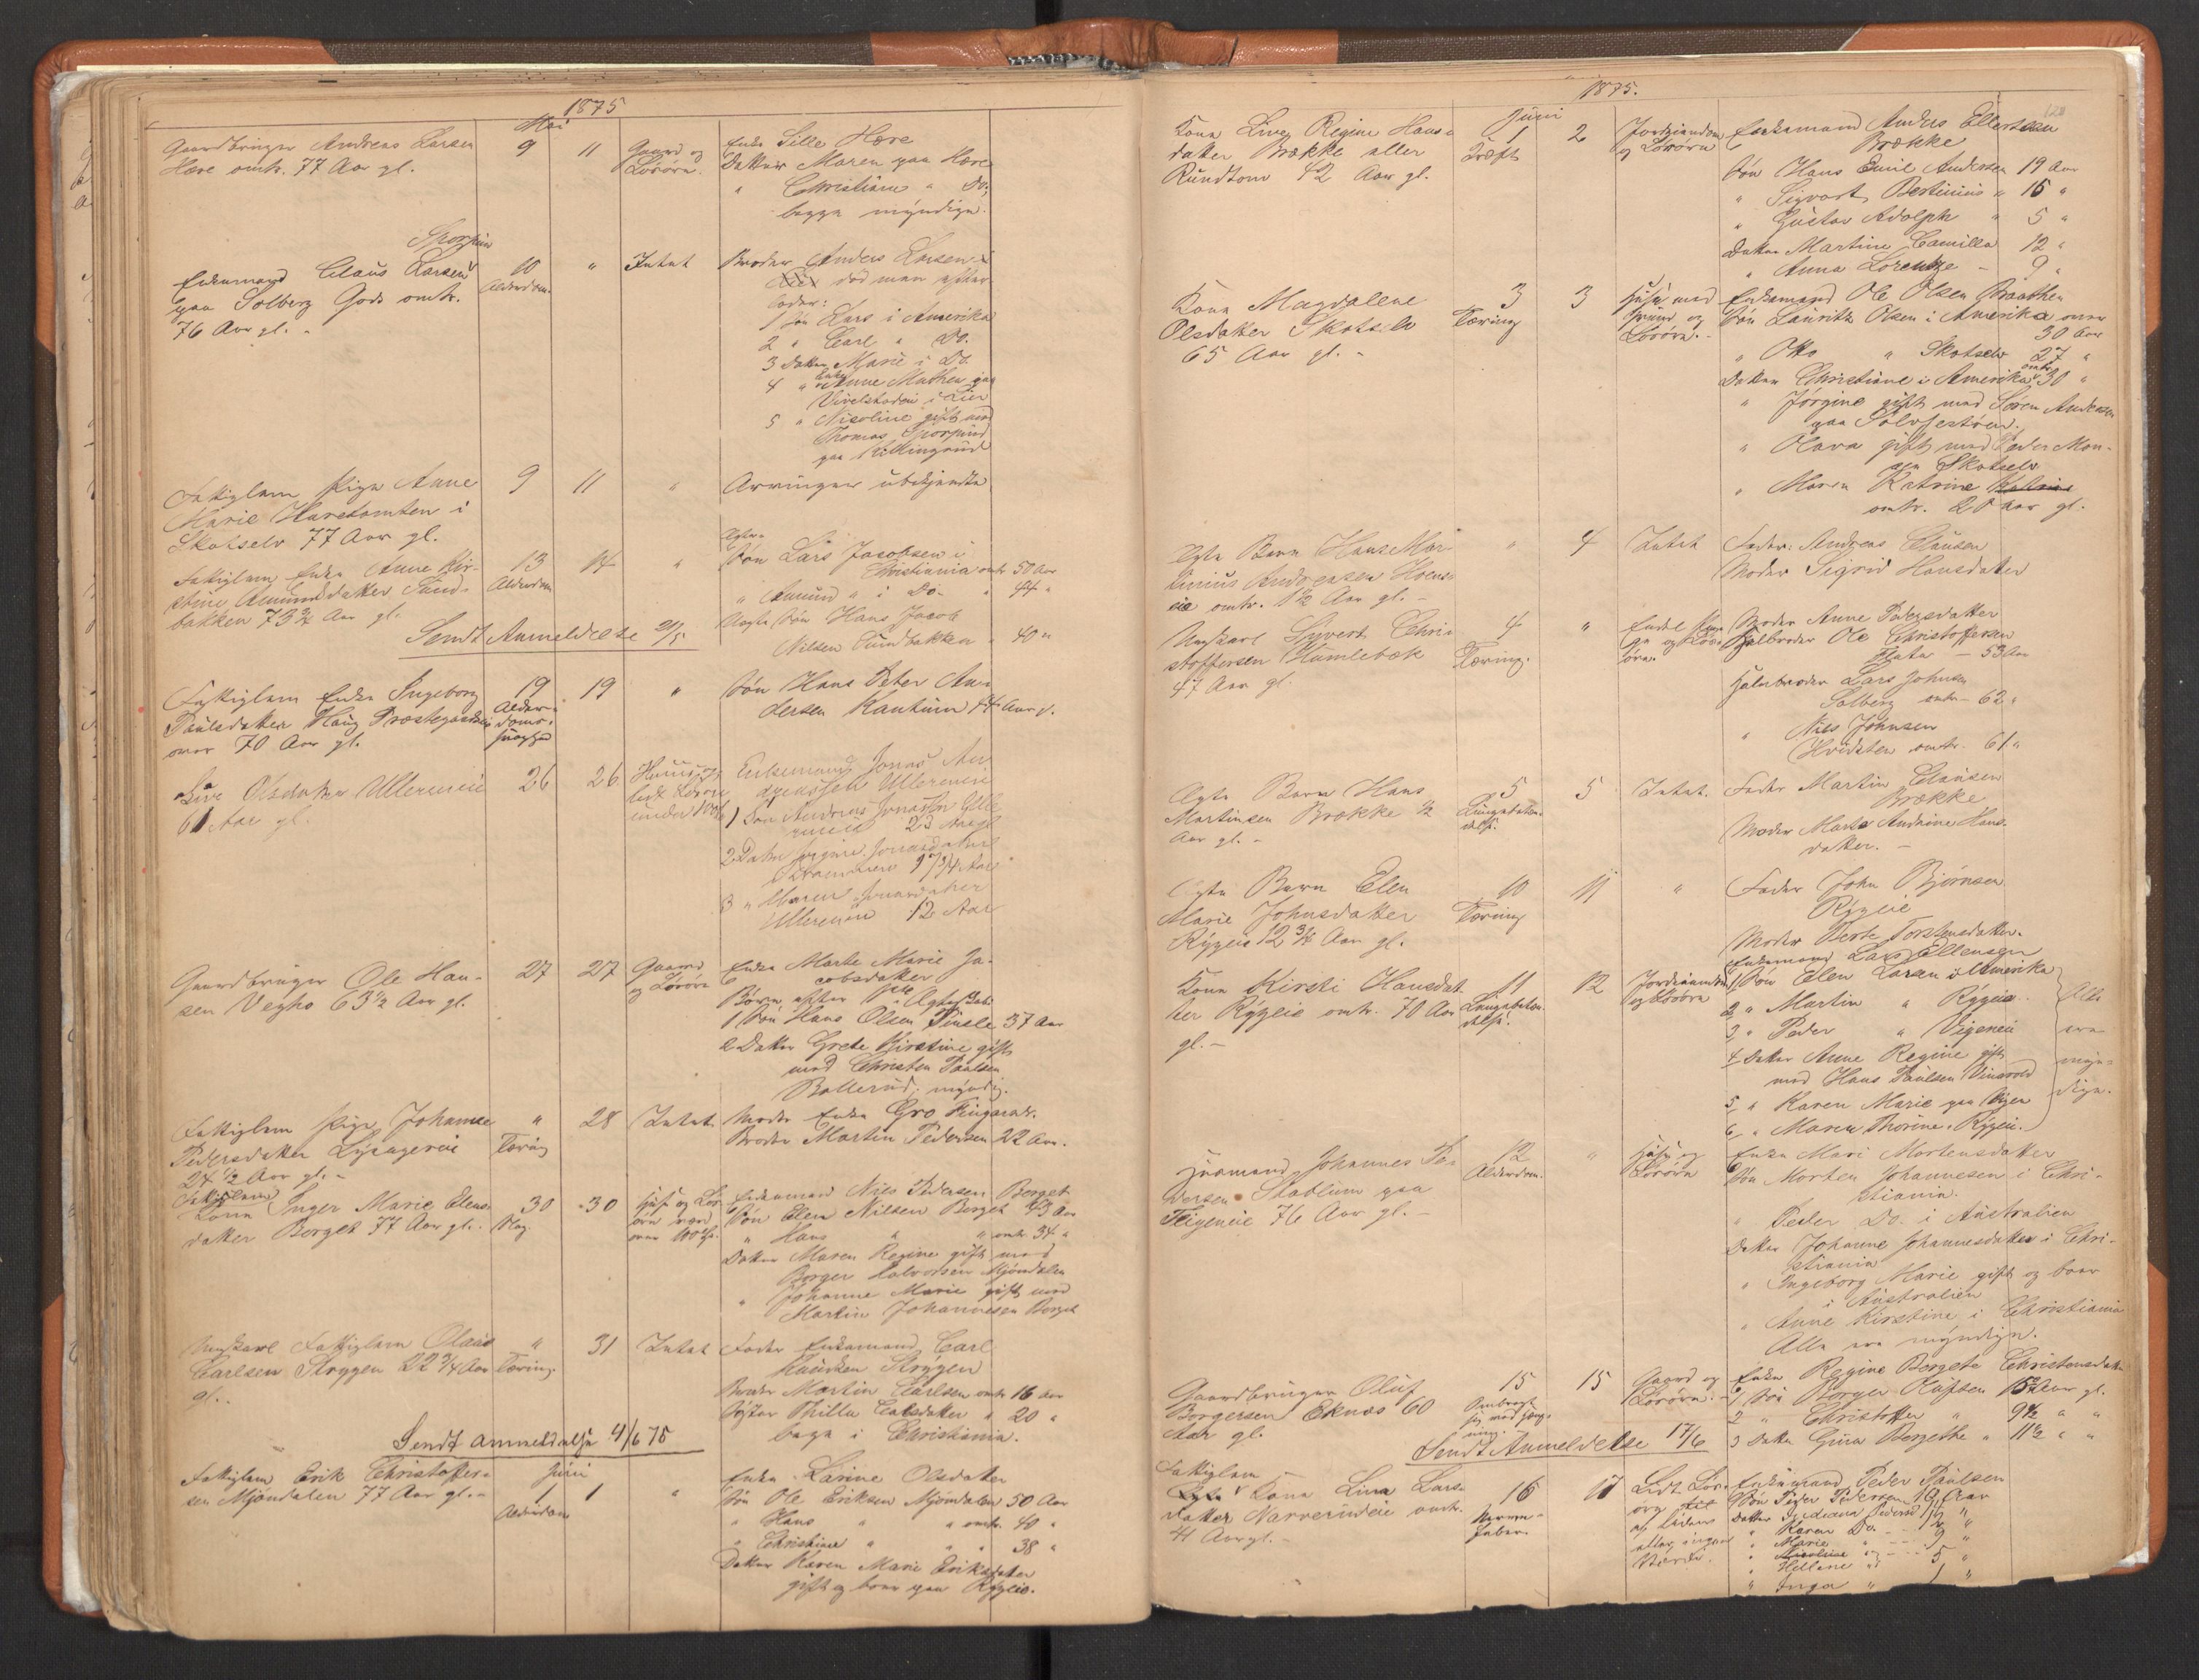 1875
Mai
Gaardbruger Andreas Larsen
Hære omtr. 77 Aar gl.
9
11
Gaard og
Løsøre.
Enke Sille Hære
Datter Maren paa Hære
" Christiane " Do,
begge myndige.
Enkemand Claus Larsen
paa Solberg Gods omtr.
76 Aar gl. -
10
Alderdom.
"
Intet
Broder Anders Larsen
død man efter-
lader:
1 Søn Lars i Amerika
2 " Carl " Do.
3 Datter Marie i Do.
4 " Enke Anne Mathea paa
i Lier
5 " Nicoline gift med
Thomas
paa
Fattiglem Pige Anne
Marie Haretomten i
Skotselv 77 Aar gl.
9
11
"
Arvinger ubekjendte
Fattiglem Enke Anne Kir-
stine Amundsdatter Sand-
bakken 73 3/4 Aar gl.
13
Alderdom
14
"
Ægte
Søn Lars Jacobsen i
Christiania omtr 50 Aar
" Amund " i Do. " 44 "
Uægte Søn Hans Jacob
Nilsen Sundbakken " 40 "
Sendt Anmeldelse 21/5
Fattiglem Enke Ingeborg
Paulsdatter Haug Præstegaardseie
over 70 Aar gl.
19
Alder-
doms-
svaghed
19
"
Søn Hans Peter An-
dersen Kantum 44 Aar g.
Live Olsdatter Ullereneie
61 Aar gl.
26
26
Huus og
lidt Løsøre
under
Enkemand Jonas An-
dreassen Ullereneie
1 Søn Andreas Jonassen Ulle-
reneie 23 Aar gl
2 Datter Jørgine Jonasdatter
Drammen 17 3/4 Aar
3 " Maren Jonasdatter
Ullereneie 12 Aar
Gaardbruger Ole Han-
sen Vegho 63 1/2 Aar gl.
27
27
Gaard
og Løsøre
Enke Marte Marie Ja-
cobsdatter
Børn efter Ægteskab
1 Søn Hans Olsen Tinsle 37 Aar
2 Datter Grete Kirstine gift
med Christen Paulsen
Bollerud, myndig.
Fattiglem Pige Johanne
Pedersdatter
24 1/2 Aar gl. -
"
Tæring
28
Intet.
Moder Enke Gro
Broder Martin Pedersen 22 Aar.
Fattiglem
Kone Inger Marie Elens-
datter Borget 77 Aar gl.
30
Slag.
30
Huus og Løs-
øre værd
over 100
Enkemand Nils Pedersen Borget
Søn Elen Nilsen Borget 43 Aar
" Hans " " omtr 34 "
Datter Maren Regine gift med
Borger Halvorsen Mjøndalen
" Johanne Marie gift med
Martin Johannesen Borget
Ungkarl Fattiglem Olaus
Carlsen Strygen 22 3/4 Aar
gl..
"
Tæring.
31
Intet
Fader Enkemand Carl
Strygen
Broder Martin Carlsen omtr 16 Aar
Søster Thilla Carlsdatter " 20 "
begge i Christiania.
Sendt Anmeldelse 4/6 75
Juni
Fattiglem Erik Christoffer-
sen Mjøndalen 77 Aar gl. -
1
Alderdom
1
"
Enke Larine Olsdatter
Søn Ole Eriksen Mjøndalen 50 Aar
" Hans " " omtr. 40 "
" Christian " " " 38 "
Datter Karen Marie Eriksdatter
gift og boer paa Rygeie.
1875.
Juni
Kone Live Regine Hans-
datter Brække eller
Rundtom 42 Aar gl.
1
Kræft
2
Jordeiendom
og Løsøre
Enkemand Anders Ellertsen
Brække
Søn Hans Emil Andersen 19 Aar
" Sigvart Bertinius " 15 "
" Gustav Adolph " 5 "
Datter Martine Camilla 12 "
" Anna Lorentze - 9 "
Kone Magdalene
Olsdatter Skotselv
65 Aar gl. -
3
Tæring
3
Huus med
Grund og
Løsøre. -
Enkemand Ole Olsen Braathen
Søn Lauritz Olsen i Amerika over
30 Aar
" Otto " Skotselv 27 "
Datter Christiane i Amerika omtr 30 "
" Jørgine gift med Søren Andersen
paa
" Olava gift med Peder Mon-
sen Skotselv
" Maren Katrine Katrine
omtr. 20 Aar gl.
Ægte Barn Hans Mar-
tinius Andreasen Hoens-
eie omtr. 1 1/2 Aar gl. -
"
4
Intet
Fader: Andreas Clausen
Moder Sigrid Hansdatter
Ungkarl Syvert Chri-
stoffersen Humlebæk
47 Aar gl.
4
Tæring.
"
Endel Pen-
ge og Løs-
øre.
Moder Anne Pedersdatter
Halvbroder Ole Christoffersen
Flata - 53 Aar
Halvbroder Lars Johnsen
Solberg omtr - 62 "
" Nils Johnsen
Hvidsten omtr. 61 "
Ægte Barn Hans
Martinsen Brække 1/2
Aar gl. -
5
Lungebetæn-
delse.
5
Intet.
Fader Martin Clausen
Brække
Moder Marte Andrine Hans-
datter. -
Ægte Barn Elen
Marie Johnsdatter
Rygeie 12 3/4 Aar gl.
10
Tæring
11
"
Fader John Bjørnsen
Rygeie
Moder Berte Torstensdatter.
Kone Kirsti Hansdat-
ter Rygeie omtr. 70 Aar
gl. -
11
Lungebetæn-
delse.
12
Jordeiendom
og Løsøre
Enkemand Lars Ellensen
1 Søn Elen Larsen i Amerika
2 " Martin " Rygeie
3 " Peder " Vigeneie
4 Datter Anne Regine gift
med Hans Paulsen
5 " Karen Marie paa
6 " Maren Thorine Rygeie.
Alle
ere
myn-
dige.
Huusmand Johannes Pe-
dersen Stablum paa
76 Aar gl. -
12
Alderdom.
"
Huus og
Løsøre
Enke Mari Mortensdatter
Søn Morten Johannesen i Chri-
stiania.
" Peder Do. i Australien
Datter Johanne Johannesdatter i Chri-
stiania
" Ingeborg Marie gift og boer
i Australien
" Anne Kirstine i Christiania
Alle ere myndige.
Gaardbruger Oluf
Borgersen Eknæs 60
Aar gl.
15
Ombragt
sig ved hæng-
ning.
15
Gaard og
Løsøre. -
Enke Regine Bergete Christensdatter
1 Søn Borger Olufsen 15 Aar gl.
2 " Christoffer " 9 1/2 " "
3 Datter Gina Bergethe " 11 1/2 " "
Sendt Anmeldelse 17/6
Fattiglem
Kone Lina Lars-
datter Narverudeie omtr.
41 Aar gl. -
16
Nerve-
feber.
17
Lidt Løs-
øre
af liden
eller ingen
Værdi.
Enkemand Peder Paulsen
Søn Peder Pedersen
" Karen Do.
" Marie
" Hellene " 5 "
" Inga " 1 "